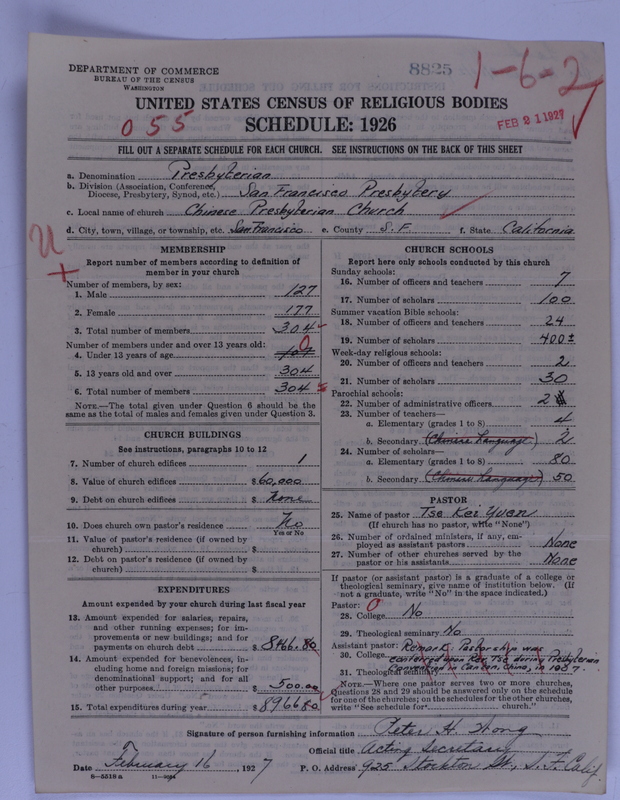 DEPARTMENT OF COMMERCE
BUREAU OF THE CENSUS
WASHINGTON
8825
1-6-27
UNITED STATES CENSUS OF RELIGIOUS BODIES
055
SCHEDULE: 1926
FEB 21 1927
FILL OUT A SEPARATE SCHEDULE FOR EACH CHURCH. SEE INSTRUCTIONS ON THE BACK OF THIS SHEET
a. Denomination Presbyterian
b. Division (Association, Conference, Diocese, Presbytery, Synod, etc.) San Francisco Presbytery
c. Local name of church Chinese Presbyterian Church
d. City, town, village, or township, etc. San Francisco e. County S.F. f. State California
MEMBERSHIP
Report number of members according to definition of
member in your church
Number of members, by sex:
1. Male 127
2. Female 177
3. Total number of members 304
Number of members under and over 13 years old:
4. Under 13 years of age 0
5. 13 years old and over 304
6. Total number of members 304
NOTE.—The total given under Question 6 should be the
same as the total of males and females given under Question 3.
CHURCH BUILDINGS
See instructions, paragraphs 10 to 12
7. Number of church edifices 1
8. Value of church edifices $60,000
9. Debt on church edifices $ None
10. Does church own pastor's residence No
Yes or No
11. Value of pastor's residence (if owned by
church) $
12. Debt on pastor's residence (if owned by
church) $
EXPENDITURES
Amount expended by your church during last fiscal year
13. Amount expended for salaries, repairs,
and other running expenses; for im-
provements or new buildings; and for
payments on church debt $ 8466.80
14. Amount expended for benevolences, in-
cluding home and foreign missions; for
denominational support; and for all
other purposes $ 500.00
15. Total expenditures during year $ 8966.80
CHURCH SCHOOLS
Report here only schools conducted by this church
Sunday schools:
16. Number of officers and teachers 7
17. Number of scholars 100
Summer vacation Bible schools:
18. Number of officers and teachers 24
19. Number of scholars 400±
Week-day religious schools:
20. Number of officers and teachers 2
21. Number of scholars 30
Parochial schools:
22. Number of administrative officers 2
23. Number of teachers—
a. Elementary (grades 1 to 8) 4
b. Secondary (Chinese Language) 2
24. Number of scholars—
a. Elementary (grades 1 to 8) 80
b. Secondary (Chinese Language) 50
PASTOR
25. Name of pastor Tse Kei Yuen
(If church has no pastor, write "None")
26. Number of ordained ministers, if any, em-
ployed as assistant pastors None
27. Number of other churches served by the
pastor or his assistants None
If pastor (or assistant pastor) is a graduate of a college or
theological seminary, give name of institution below. (If
not a graduate, write "No" in the space indicated.)
Pastor:
28. College No
29. Theological seminary No
Assistant pastor: Remark: Pastorship was
30. College conferred upon Rev. Tse during Presbyterian
31. Theological seminary Convention in Canton, China, in
NOTE.—Where one pastor serves two or more churches,
Questions 28 and 29 should be answered only on the schedule
for one of the churches; on the schedules for the other churches,
write "See schedule for church."
Signature of person furnishing information Peter H. Wong
Official title Acting Secretary
Date February 16, 1927 P. O. Address 925 Stockton St., S.F. Calif.
8—5518 a 11—9034